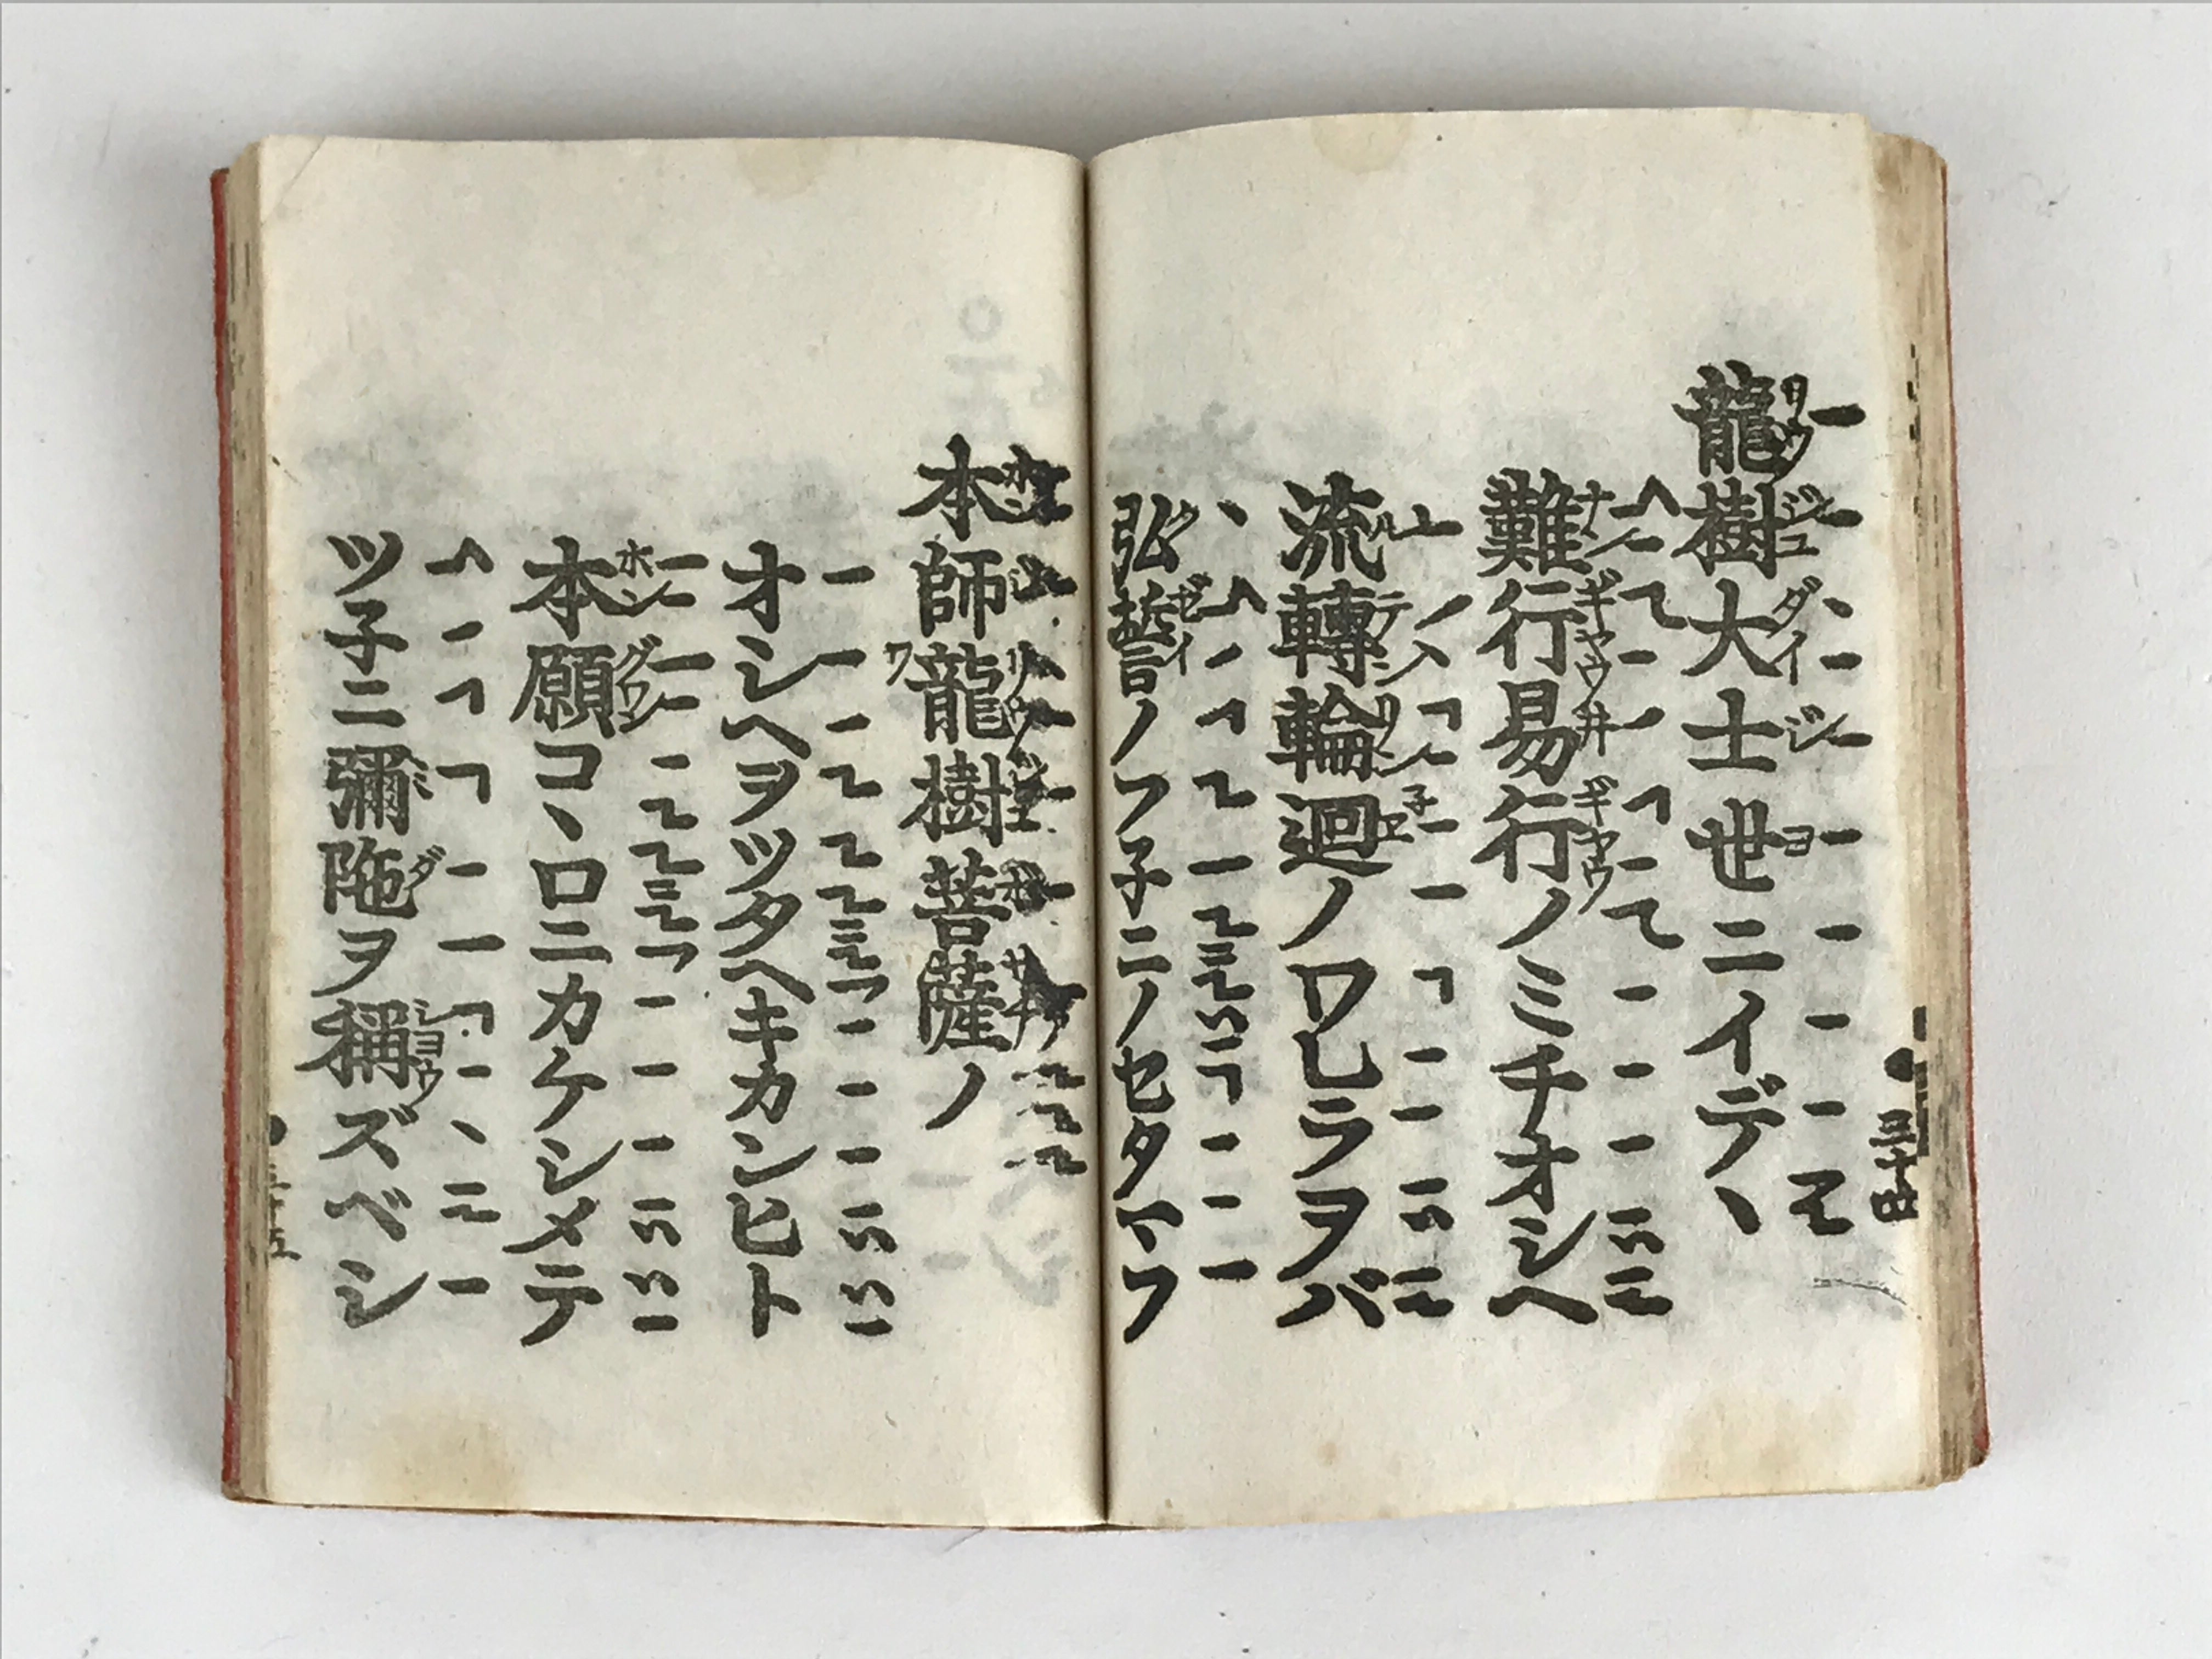 龍樹大士世ニイデヽ
難行易行ノミチオシヘ
流轉輪廻ノワレラヲバ
弘誓ノフ子ニノセタマフ
三十四
本師龍樹菩薩ノ
オシヘヲツタヘキカンヒト
本願コヽロニカケシメテ
ツ子ニ彌陀ヲ稱ズベシ
三十五